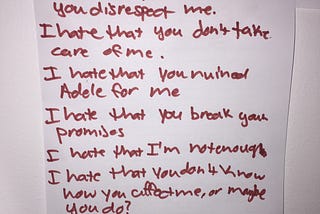 you disrespect me.
I hate that you don't take
care of me.
I hate that you ruined
Adele for me
I hate that you break your
promises
I hate that I'm not enough
I hate that you don't know
how you affect me, or maybe
you do?